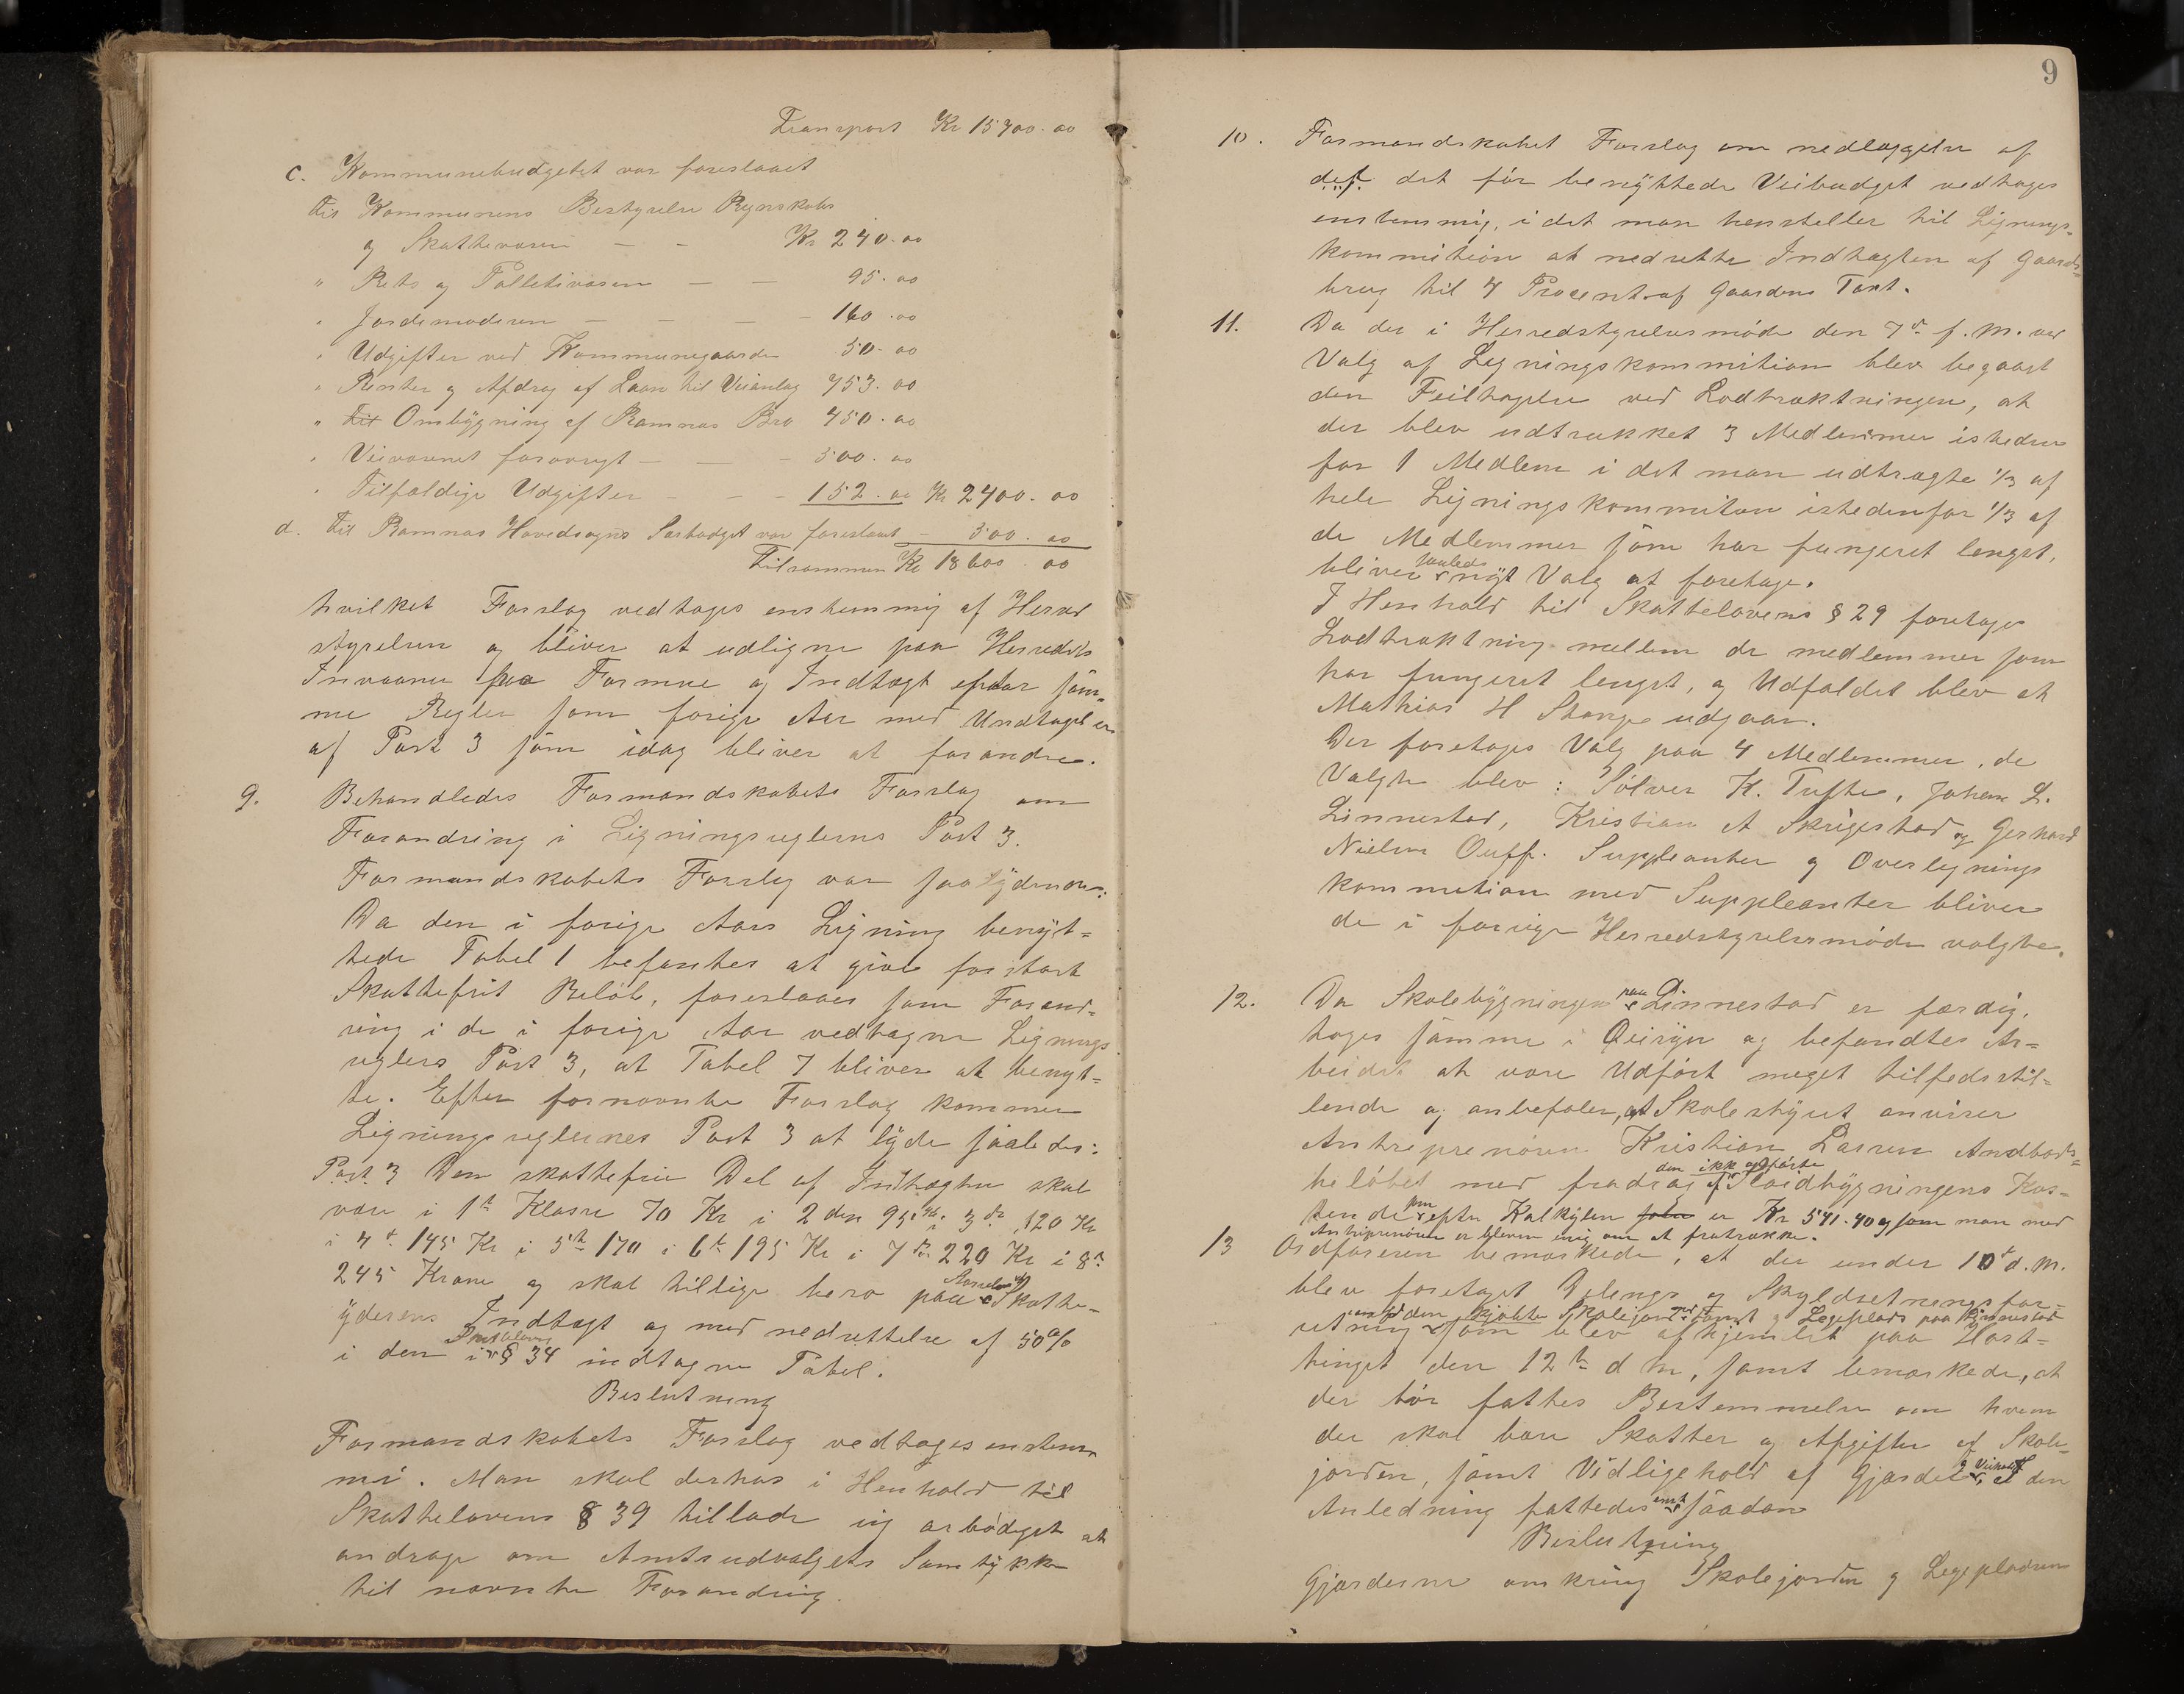 Transport Kr 15700.00
c. Kommunebudgetet var foreslaaet
til Kommunens Bestyrelse Regnskabs
og Skattevæsen — — Kr 240.00
" Rets og Politivæsen — — 95.00
" Jordemoderen — — — 160.00
" Udgifter ved Kommunegaarden 50.00
" Renter og Afdrag af Laan til Veianlæg 753.00
" til Ombygning af Ramnæs Bro 450.00
" Veivæsenet forøvrigt — — — 500.00
" Tilfældige Udgifter — — — 152.00 Kr 2400.00
d. til Ramnæs Hovedsogns Særbudget var foreslaaet — 500.00
Tilsammen Kr 18600.00
hvilket Forslag vedtoges enstemmig af Herred
styrelsen og bliver at udligne paa Herredets
Invaanere paa Formue og Indtægt efter sam-
me Regler som forige Aar med Undtagelse
af Post 3 som idag bliver at forandre.
9. Behandledes Formandskabets Forslag om
Forandring i Ligningsreglerns Post 3.
Formandskabets Forslag var saalydende:
Da den i forige Aars Ligning benyt-
tede Tabel 1 befandtes at give for stort
Skattefrit Beløb, foreslaaes som Forand-
ring i de i forige Aar vedtagne Lignings
reglers Post 3, at Tabel 7 bliver at benyt-
te. Efter fornævnte Forslag kommer
Ligningsreglernes Post 3 at lyde saaledes:
Post 3 Den skattefrie Del af Indtægten skal
være i 1ste Klasse 70 Kr i 2den 95 Kr i 3de 120 Kr
i 4de 145 Kr i 5te 170 i 6te 195 Kr i 7de 220 Kr i 8de
245 Kroner og skal tillige bero paa Skatte-
yderens Indtægt og med nedsettelse af 50 %
i den i Skattelovens § 34 indtagne Tabel.
Beslutning
Formandskabets Forslag vedtoges enstem
mi. Man skal derhos i Henhold til
Skattelovens § 39 tillade sig ærbødigst at
andrage om Amtsudvalgets Samtykke
til nævnte Forandring.
9
10. Formandskabet Forslag om nedlæggelse af
det det før benyttede Veibudget vedtoges
enstemmig, i det man henstiller til Lignings-
kommition at nedsette Indtægten af Gaards-
brug til 4 Procent af Gaardens Taxt.
11. Da der i Herredstyrelsesmøde den 7de f. M. ved
Valg af Ligningskommition blev begaaet
den Feiltagelse ved Lodtræktningen, at
der blev udtrukket 3 Medlemmer isteden
for 1 Medlem i det man udtragte 1/3 af
hele Ligningskommiton istedenfor 1/3 af
de Medlemmer som har fungeret lengst,
bliver saaledes nyt Valg at foretage.
I Henhold til Skattelovens § 29 foretoges
Lodtræktning mellem de medlemmer som
har fungeret lengst, og Udfaldet blev at
Mathias H Stange udgaar.
Der foretoges Valg paa 4 Medlemmer, de
Valgte blev: Sølver H. Tufte, Johan L.
Linnestad, Kristian A Skrigestad og Gerhard
Nielsen Ouff. Suppleanter og Overlignings
kommition med Suppleanter bliver
de i forrige Herredstyrelsesmøde valgte.
12. Da Skolebygningen paa Linnestad er færdig,
toges samme i Øiesyn og befandtes Ar-
beidet at være Udført meget tilfedsstil-
lende og anbefaler, at Skolestyret anviser
Antreprenøren Kristian Larsen Anbuds-
beløbet med fradrag af den ikke opførte Sløidbygningens Kos-
tende som efter Kalkylen er Kr 541.40 og som man med
Antreprenøren er bleven enig om at fratrække.
13 Ordføreren bemærkede, at der under 10de d. M.
blev foretaget Delings og Skyldsetningsfor-
retning paa den kjøbte Skolejord samt Legeplads paa Linnestad
som blev afhjemlet paa Høst-
tinget den 12te d M, samt bemærkede, at
der bør fattes Bestemmelse om hvem
der skal bære Skatter og Afgifter af Skole-
jorden, samt Vidligehold af Gjærdet og Veihold, i den
Anledning fattedes enst. saadan
Beslutning
Gjærderne omkring Skolejorden og Legepladsen